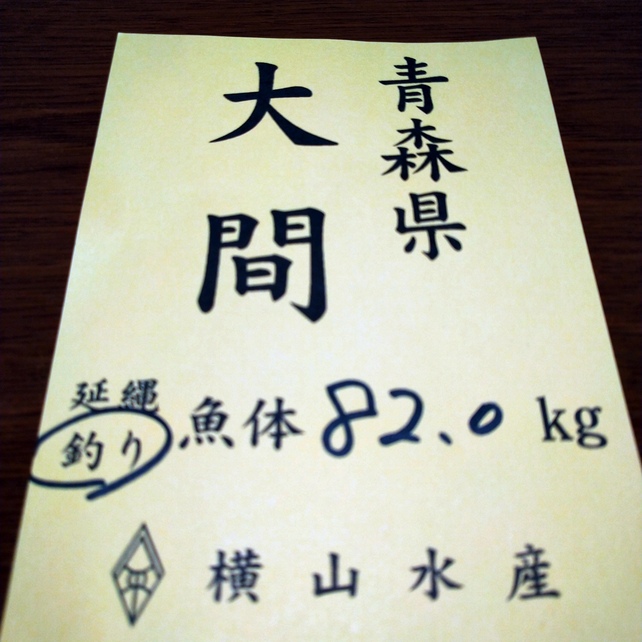 青森県
大間
延縄
釣り
魚体 82.0 kg
横山水産